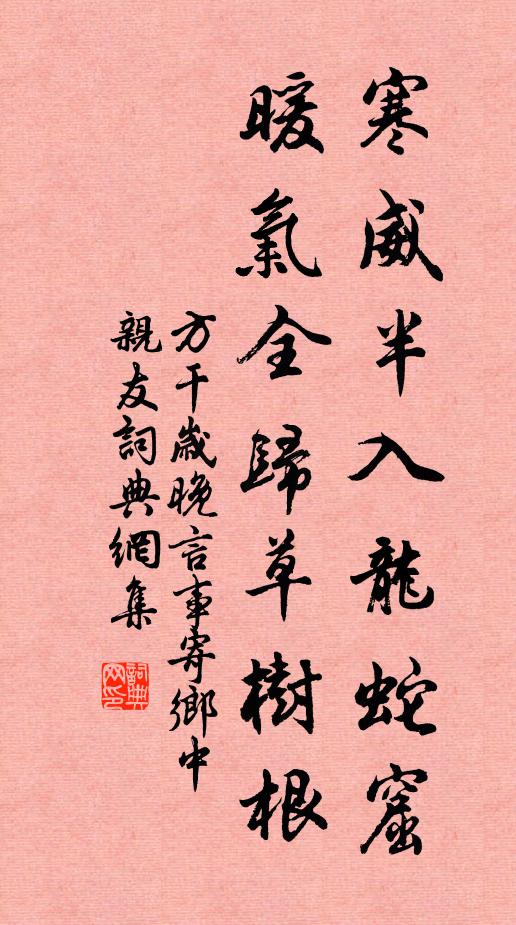 寒威半入龍蛇窟
暖氣全歸草樹根
方干歲晚言事寄鄉中
親友詞典網集
詞典网印